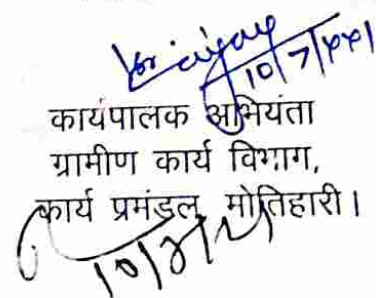 10/7/
कार्यपालक अभियंता
ग्रामीण कार्य विभाग,
कार्य प्रमंडल, मोतिहारी।